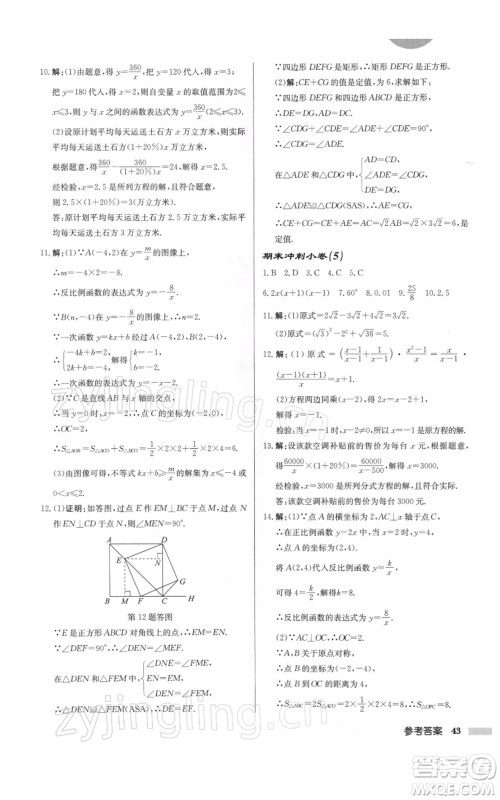 10.解:(1)由题意,得 y=360/x,把 y=120代入,得 x=3.
把 y=180代入,得 x=2,所以自变量 x 的取值范围为2≤
x≤3,则 y 与 x 之间的函数表达式为 y=360/x(2≤x≤3).
(2)设原计划平均每天运送土石方 x 万立方米,则实际
平均每天运送土石方(1+20%)x 万立方米,
根据题意,得360/x-360/(1+20%)x=24,解得 x=2.5.
经检验,x=2.5是所列方程的解,且符合题意.
2.5×(1+20%)=3(万立方米).
答:原计划平均每天运送土石方2.5万立方米,实际平均
每天运送土石方 3 万立方米.
11.解:(1)∵A(-4,2)在 y=m/x的图像上,
∴m=-4×2=-8.
∴反比例函数的表达式为 y=-8/x.
∵B(n,-4)在 y=-8/x的图像上,∴n=2.
∵一次函数 y=kx+b 过点 A,B,
∴{-4k+b=2, 2k+b=-4. 解得{k=-1, b=-2.
∴一次函数的表达式为 y=-x-2.
(2)∵C 是直线 AB 与 x 轴的交点,
∴当 y=0 时,x=-2.∴点 C(-2,0).
∴OC=2.
∴S△AOB=S△ACO+S△BCO=1/2×2×2+1/2×2×4=6.
(3)由图像可得,不等式 kx+b≥m/x的解集为x≤-4或
0<x≤2.
12.(1)证明:如答图,过点 E 作 EM⊥BC 于点 M,过点 E
作EN⊥CD于点N,∴∠MEN=90°.
A D E N G B M F C H
第 12 题答图
∵E 是正方形 ABCD 对角线上的点,∴EM=EN.
∵∠DEF=90°,∴∠DEN=∠MEF.
在△DEN 和△FEM 中,{∠DNE=∠FME, EN=EM, ∠DEN=∠FEM,
∴△DEN≌△FEM(ASA),∴DE=EF.
∵四边形 DEFG 是矩形,∴矩形 DEFG 是正方形.
(2)解:CE+CG 的值是定值,为 6,求解如下:
∵四边形 DEFG 和四边形 ABCD 是正方形,
∴DE=DG,AD=DC.
∵∠CDG+∠CDE=∠ADE+∠CDE=90°,
∴∠CDG=∠ADE.
在△ADE 和△CDG 中,{AD=CD, ∠ADE=∠CDG, DE=DG,
∴△ADE≌△CDG(SAS),∴AE=CG.
∴CE+CG=CE+AE=AC=√2AB=√2×3√2=6,是
定值.
期末冲刺小卷(5)
1.B 2.D 3.C 4.C 5.B
6.2x(x+1)(x-1) 7.60° 8.0.01 9.25/8 10.2.5
11.解:(1)原式=2√2-3√2+4√2=3√2.
(2)原式=(√3)²-2²+√36=5.
12.解:(1)原式=(x-1/x-1+1/x-1)·x²-1/x=x/x-1·
(x-1)(x+1)/x=x+1.
(2)方程两边同乘 x-1,得 3=x+5(x-1).
解得 x=4/3.
经检验,当 x=4/3时,x-1≠0,∴x=4/3是原方程的解.
13.解:设该款空调补贴前的售价为每台 x 元,根据题意,
得60000/x×(1+20%)=60000/x-500,解得 x=3000.
经检验,x=3000是所列方程的解,且符合题意.
答:该款空调补贴前的售价为每台 3000 元.
14.解:(1)∵点 A 的横坐标为 2,点 A 在正比例函数 y=
2x 的图像上,
∴当 x=2 时,y=4.∴点 A(2,4).
将 A(2,4)代入反比例函数 y=k/x,
可得4=k/2,解得 k=8.
∴反比例函数的表达式为 y=8/x.
(2)∵AC⊥OC,∴OC=2.
∵A,B 关于原点对称,
∴点 B 的坐标为(-2,-4).
∴点 B 到 AC 的距离为 2-(-2)=4.
∴S△ABC=2S△ACO=2×1/2×2×4=8,∴S△OPC=8.
zyjingling.cn
zyjingling.cn
参考答案 43
作业精灵